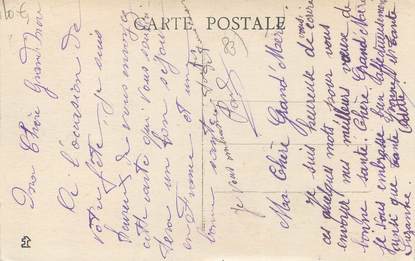 CARTE POSTALE
Ma Chère Grand Mère
A l'occasion de
votre fête je suis
heureux de vous envoyer
cette carte qui vous
fera un bon séjour
en France et une
bonne santé
Je vous
Ma Chère Grand Mère
Je suis heureuse de vous écrire
ces quelques mots pour vous
envoyer mes meilleurs vœux de
bonne santé. Chère Grand Mère
Je vous embrasse bien affectueusement
ainsi que tante et tante
Suzanne